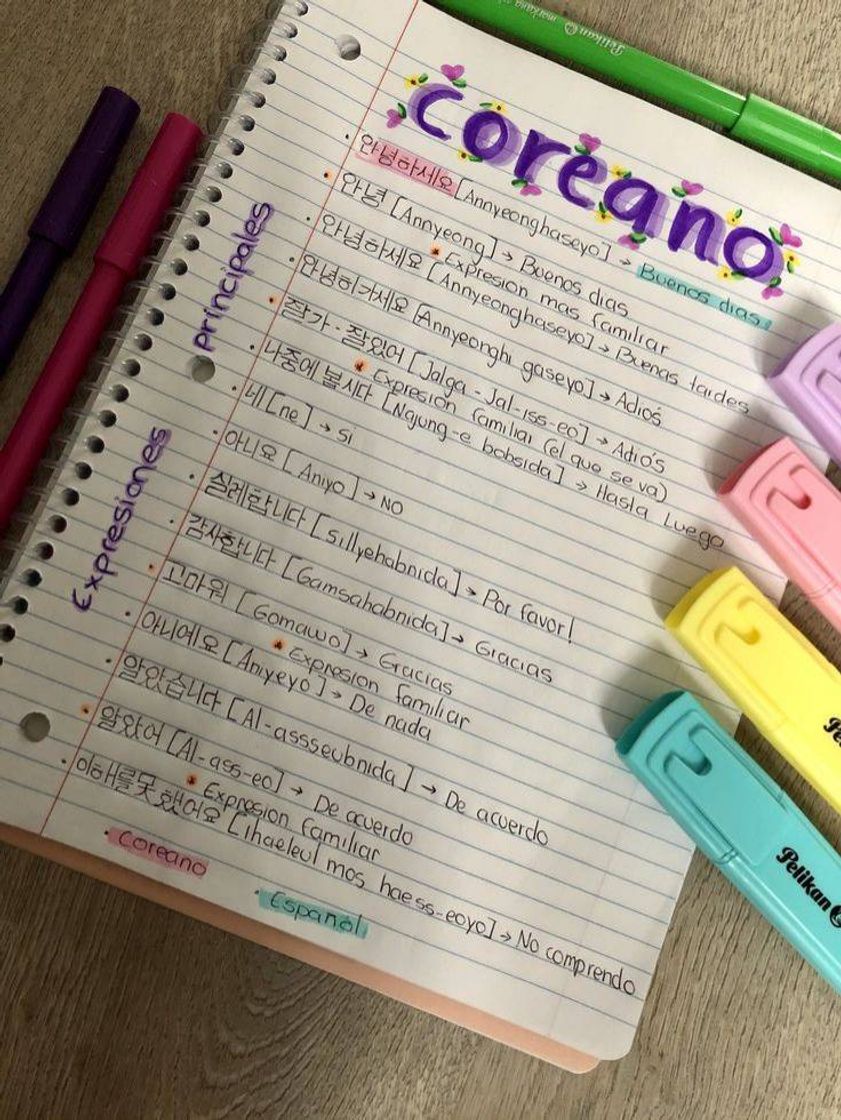 Pelikan markana
coreano
Principales
Expresiones
• 안녕하세요 [Annyeonghaseyo] → Buenos dias.
• 안녕 [Annyeong] → Buenos dias
* Expresion mas familiar
• 안녕하세요 [Annyeonghaseyo] → Buenas tardes
• 안녕히가세요 [Annyeonghi gaseyo] → Adiós
• 잘가 - 잘있어 [Jalga - Jal-iss-eo] → Adiós
* Expresión familiar (el que se va)
• 나중에 봅시다 [Najung-e bobsida] → Hasta Luego
• 네 [ne] → si
• 아니요 [Aniyo] → NO
• 실례합니다 [sillyehabnida] → Por favor!
• 감사합니다 [Gamsahabnida] → Gracias
• 고마워 [Gomawo] → Gracias
* Expresion familiar
• 아니에요 [Aniyeyo] → De nada
• 알았습니다 [Al-assseubnida] → De acuerdo
• 알았어 [Al-ass-eo] → De acuerdo
* Expresion familiar
• 이해를못했어요 [ihaeleul mos haess-eoyo] → No comprendo
• Coreano
• Español
Pelikan